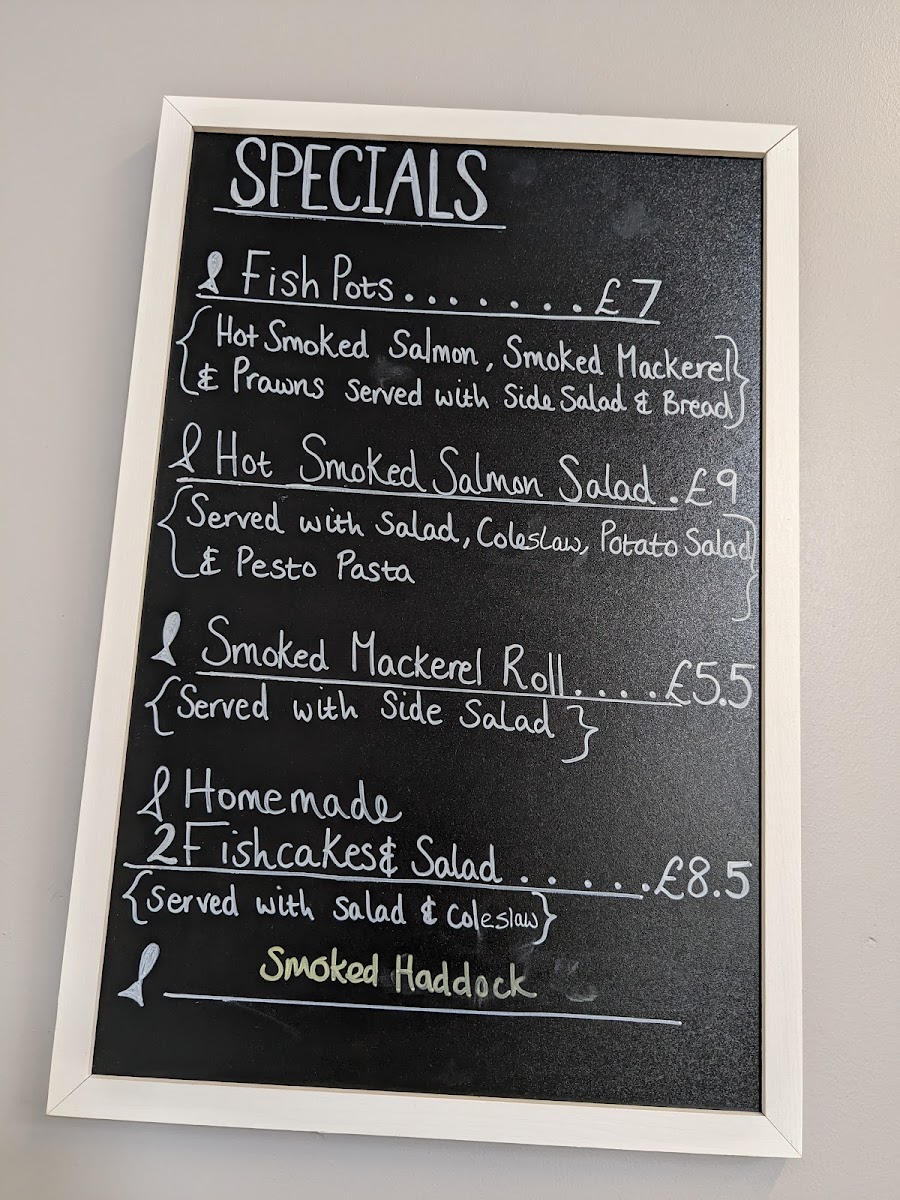 SPECIALS
Fish Pots . . . . . . . £7
{Hot Smoked Salmon, Smoked Mackerel
& Prawns served with Side Salad & Bread}
Hot Smoked Salmon Salad . £9
{Served with Salad, Coleslaw, Potato Salad
& Pesto Pasta}
Smoked Mackerel Roll . . . . £5.5
{Served with Side Salad}
Homemade
2 Fishcakes & Salad . . . . . £8.5
{Served with Salad & Coleslaw}
Smoked Haddock